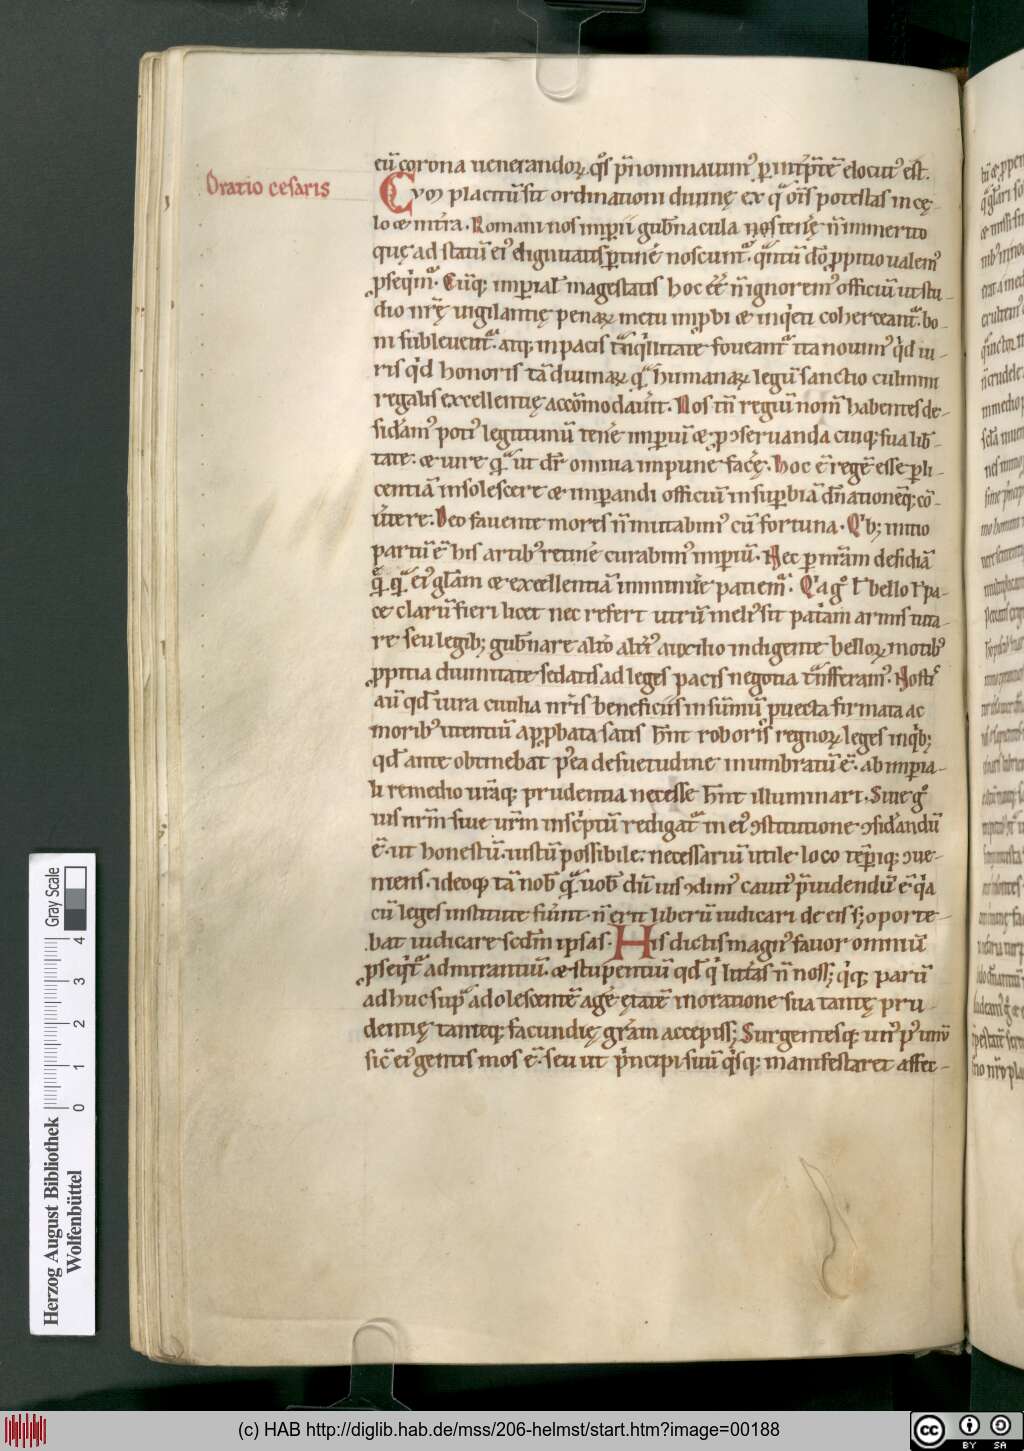 Oratio cesaris
cū corona uenerandoꝝ qͦs p̄nominauimꝰ ꝑ int̕p̄tē elocutꝰ est.
Cvm placitū sit ordinationi diuinę ex qͣ om̄is potestas in cę-
lo ⁊ in t̕ra. Romani nos imꝑii gub̄nacula nos tenꝭę n̄ inmerito
quę ad statū eiꝰ dignitatis ꝑtinꝭe noscunt͛. qͣntū dō ꝓpitio ualemꝰ
ꝓseqͥm͛. Cūqꝫ imꝑial̕ magestatis hoc eē n̄ ignoremꝰ officiū ut stu-
dio nr̄ę uigilantię penaꝝ metu imꝓbi ⁊ inqͥeti coherceant͛. bo-
ni subleuent͛. atqꝫ in pacis tͣnqͥllitate foueant͛ ita nouimꝰ qͥd iu-
ris qͥd honoris tā diuinaꝝ qͣ̄ humanaꝝ legū sanctio culmini
regalis excellentię accōmodaũit. Nos tn̄ regiū nom̄ habentes de-
sid̕amꝰ potiꝰ legitimū tenꝭe imꝑiū ⁊ ꝓ ↄseruanda cuiqꝫ sua lib̄-
tate. ⁊ iure qͣ̄ ut dr̄ omnia impune facꝭe. hoc ē regē esse ꝑ li-
centiā insolescere ⁊ imꝑandi officiū in suꝑbiā dn̄ationēqꝫ cō-
ũtere. Deo fauente mores n̄ mutabimꝰ cū fortuna. Qͥbꝫ initio
partū ē his artibꝰ retinꝭe curabimꝰ imꝑiū. Nec ꝑ nr̄am desidiā
q̄qͣ̄ eiꝰ gl̄am ⁊ excellentiā imminui patiem͛. Qͥa gͦ l̕ bello l̕ pa-
ce clarū fieri licet nec refert utrū meliꝰ sit pat̕am armis tuta-
re seu legibꝫ gub̄nare alt̕o alt̕iꝰ auxilio indigente belloꝝ motibꝰ
ꝓpitia diuinitate sedatis ad leges pacis negotia tͣnsferamꝰ. Nostͥ
aū qd̄ iura ciuilia nr̄is beneficiis in sūmū ꝓuecta firmata ac
moribꝰ utentiū apꝓbata satis hn̄t roboris regnoꝝ leges in qͥbꝫ
qd̄ ante obtinebat p̕ea desuetudine inumbratū ē. ab imꝑia-
li remedio ur̄aqꝫ prudentia necesse hn̄t illuminari. Siue gͦ
ius nr̄m siue ur̄m insc̕ptū redigat͛ in eiꝰ ↄstitutione ↄsid̕andū
ē. ut honestū. iustū possibile. necessariū utile loco tēꝑiqꝫ ↄue-
niens. ideoqꝫ tā nob̄ qͣ̄ uob̄ dū ius ↄdimꝰ cautiꝰ p̄uidendū ē qͥa
cū leges institute fũint. n̄ erit liberū iudicari de eis sꝫ oporte-
bat iudicare scd̄m ipsas. His dictis magnꝰ fauor omniū
ꝓseqͥt͛ admirantiū. ⁊ stupentiū qd̄ qͥ litt̕as n̄ nossꝫ qͥqꝫ parū
adhuc supͣ adolescentē agꝭe ętatē in oratione sua tantę pru-
dentię tantęqꝫ facundię gr̄am accepissꝫ Surgentesqꝫ unꝰ pꝰ unū
sic̄ eiꝰ gentis mos ē. seu ut pͥncipi suū qͥsqꝫ manifestaret affec-
Herzog August Bibliothek
Wolfenbüttel
0 1 2 3 4
Gray Scale
(c) HAB http://diglib.hab.de/mss/206-helmst/start.htm?image=00188
cc BY SA